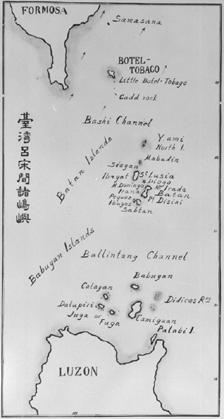 FORMOSA
Samasana
BOTEL-
TOBAGO
Little Botel-Tobago
Gadd rock
Bashi Channel
Yami
North I.
Mabudis
Siayan
Ibayat
Sta Lusia
Diogo
Batan
Disini
Ibugos
Sabtan
Batan Islands
臺灣呂宋間諸嶋嶼
Ballintang Channel
Babuyan Islands
Babuyan
Calayan
Didicas Rks
Dalupiri
Juga or
Fuga
Camiguan
Palabi I.
LUZON